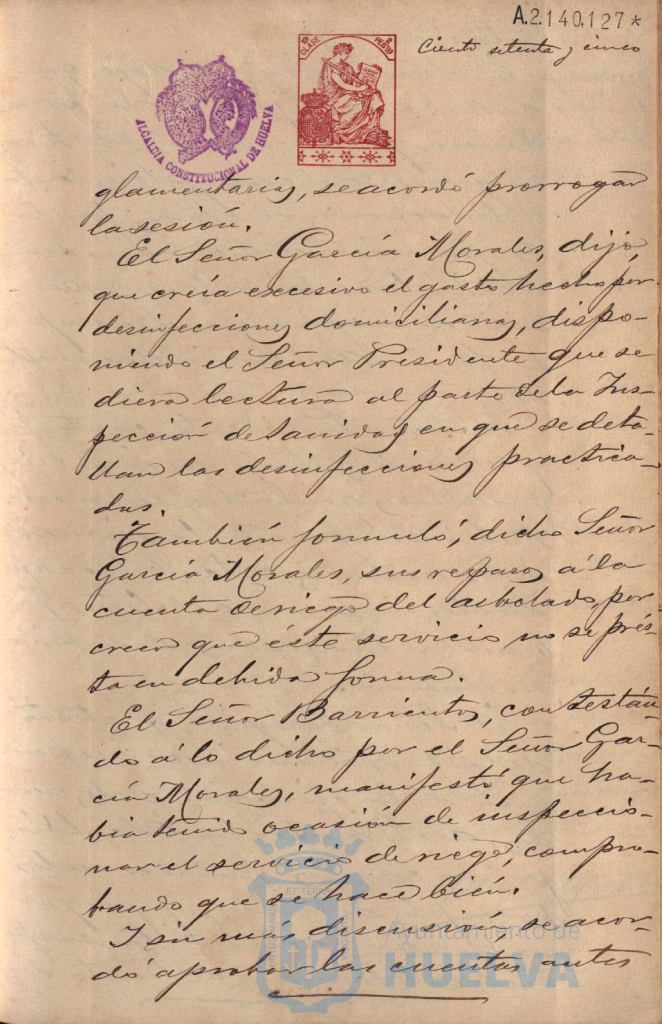 A.2.140.127 *
Ciento setenta y cinco
10ª CLASE
ALCALDIA CONSTITUCIONAL DE HUELVA
glamentarias, se acordó prorrogar
la sesión.
El Señor García Morales, dijo,
que creía excesivo el gasto hecho por
desinfecciones domiciliarias, dispo-
niendo el Señor Presidente que se
diera lectura al parte de la Ins-
pección de Sanidad en que se deta-
llan las desinfecciones practica-
das.
También formuló, dicho Señor
García Morales, sus reparos á la
cuenta de riego del arbolado, por
creer que éste servicio no se prés-
ta en debida forma.
El Señor Barrientos, contestán-
do á lo dicho por el Señor Gar-
cía Morales, manifestó que ha-
bía tenido ocasión de inspeccio-
nar el servicio de riego, compro-
bando que se hace bién.
I sin más discusión, se acor-
dó aprobar las cuentas antes
Ayuntamiento de
HUELVA